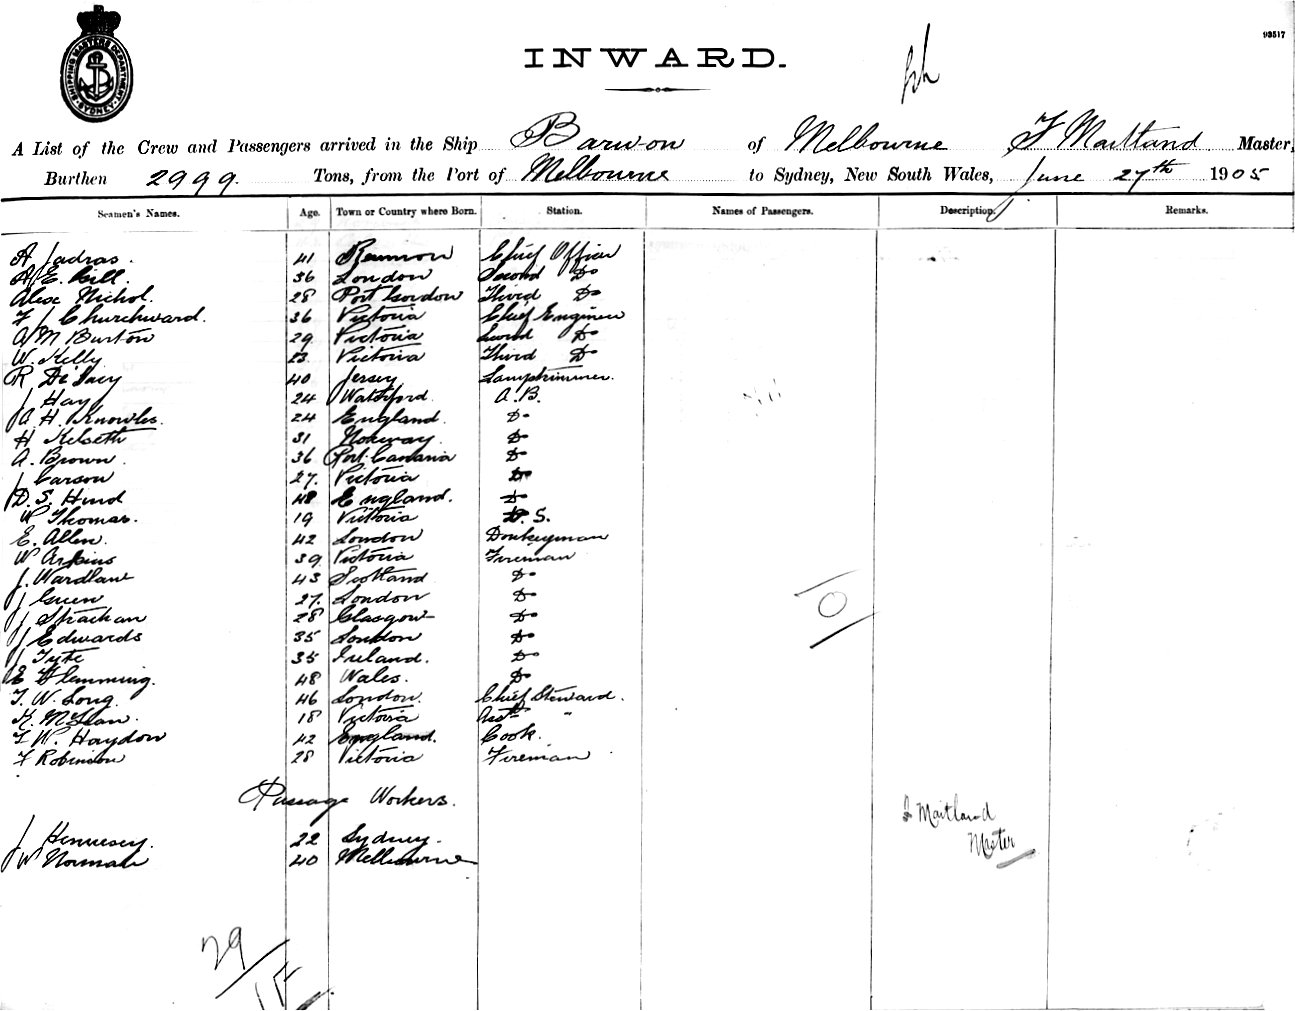 SHIPPING MASTERS DEPARTMENT
SYDNEY
93517
INWARD.
A List of the Crew and Passengers arrived in the Ship Barwon of Melbourne F Maitland Master,
Burthen 2999. Tons, from the Port of Melbourne to Sydney, New South Wales, June 27th 1905
Seamen's Names. Age. Town or Country where Born. Station. Names of Passengers. Description. Remarks.
A Jadras. 41 Reunion Chief Officer
A E. Gill. 36 London Second Do
Alex Nichol. 28 Port Gordon Third Do
F J Churchward. 36 Victoria Chief Engineer
A M Burton 29 Victoria Second Do
W. Kelly 23 Victoria Third Do
R De Lacy 40 Jersey Lamptrimmer.
J Hay 24 Waterford. A.B.
A. H. Knowles. 24 England. Do
H Kelseth 31 Norway. Do
A. Brown. 36 Port Canaria Do
J Carson 27. Victoria Do
D. S. Hind 48 England. Do
W Thomas. 19 Victoria O. S.
E. Allen. 42 London Donkeyman
W Arkins 39 Victoria Fireman
J. Wardlaw 43 Scotland Do
J Green 27. London Do
J Strachan 28 Glasgow Do
J Edwards 35 London Do
J Tyte 35 Ireland. Do
E Flemming. 48 Wales. Do
T. W. Long. 46 London. Chief Steward.
K. McLean. 18 Victoria Asst "
F W. Haydon 42 England. Cook.
F Robinson 28 Victoria Fireman
Passage Workers.
F Maitland
Master
J Hennessy. 22 Sydney.
W Norman 40 Melbourne
29